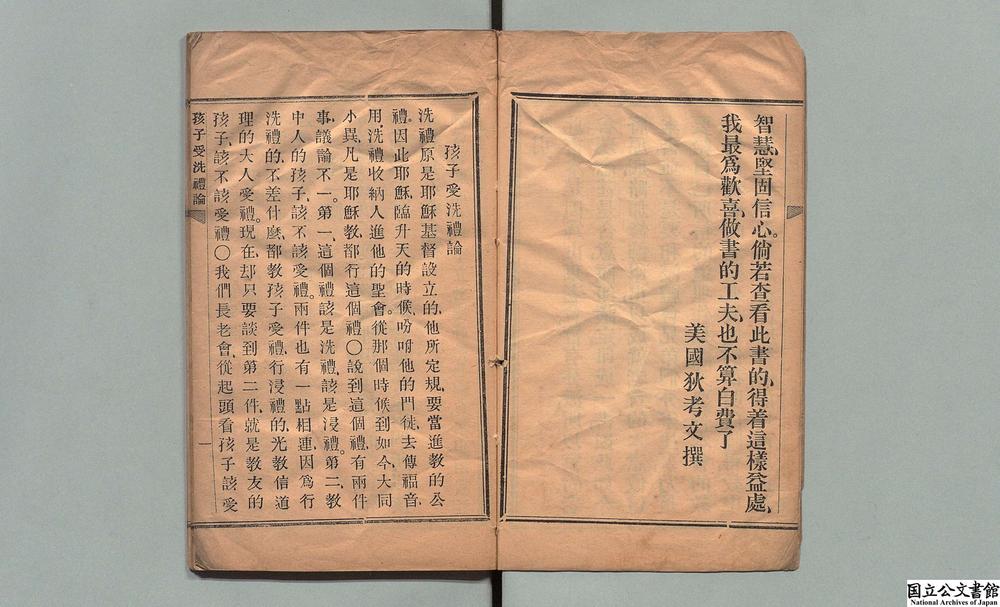 智慧、堅固信心。倘若查看此書的、得着這樣益處、
我最爲歡喜、做書的工夫、也不算白費了
美國狄考文撰
孩子受洗禮論
洗禮原是耶穌基督設立的、他所定規、要當進教的公
禮。因此耶穌、臨升天的時候、吩咐他的門徒、去傳福音、
用洗禮收納人進他的聖會。從那個時候到如今、大同
小異、凡是耶穌教、都行這個禮〇說到這個禮、有兩件
事、議論不一。第一、這個禮、該是洗禮、該是浸禮。第二、教
中人的孩子、該不該受禮。兩件也有一點相連、因爲行
洗禮的、不差什麽、都教孩子受禮、行浸禮的、光教信道
理的大人受禮。現在、却只要談到第二件、就是教友的
孩子、該不該受禮〇我們長老會、從起頭看孩子該受
孩子受洗禮論
一
国立公文書館
National Archives of Japan